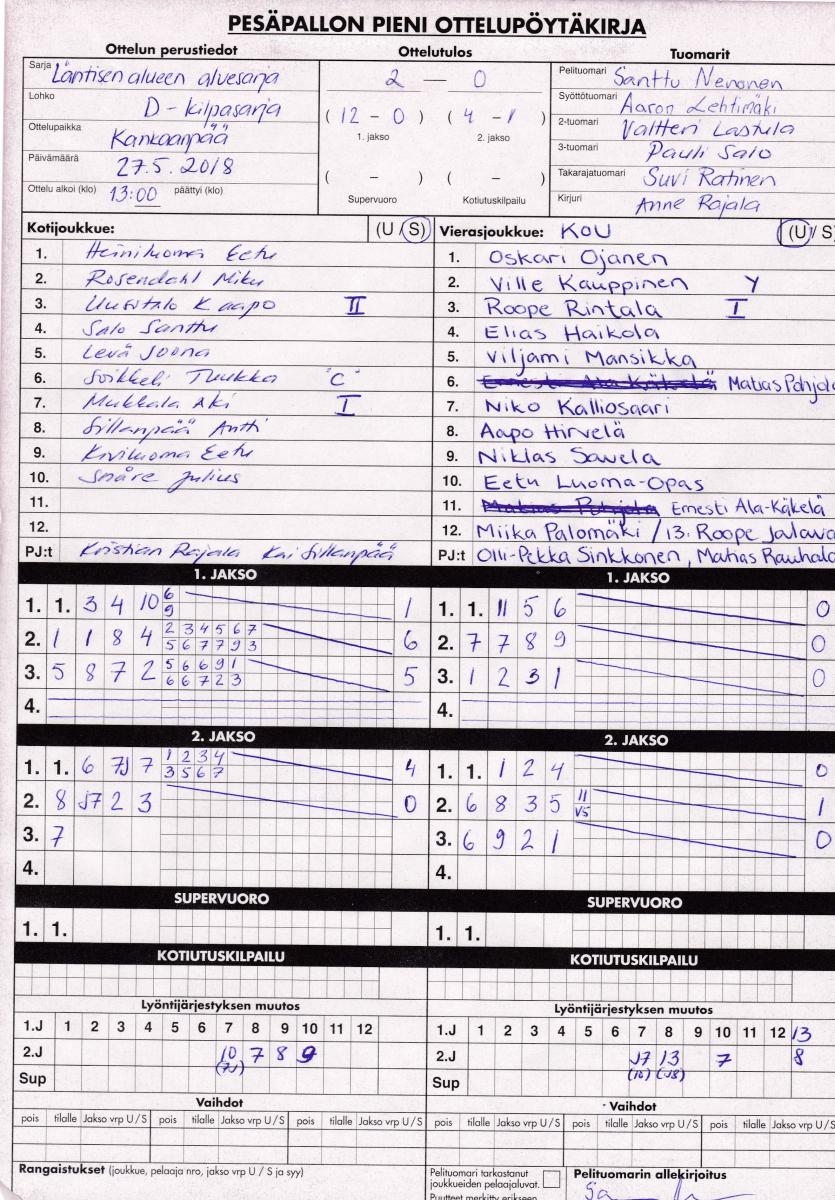 PESÄPALLON PIENI OTTELUPÖYTÄKIRJA
Ottelun perustiedot
Ottelutulos
Tuomarit
Sarja Läntisen alueen aluesarja
Lohko D-kilpasarja
Ottelupaikka Kankaanpää
Päivämäärä 27.5.2018
Ottelu alkoi (klo) 13:00 päättyi (klo)
2 — 0
(12 - 0) (4 - 1)
1. jakso 2. jakso
( - ) ( - )
Supervuoro Kotiutuskilpailu
Pelituomari Santtu Nevonen
Syöttötuomari Aaron Lehtimäki
2-tuomari Valtteri Lastula
3-tuomari Pauli Salo
Takarajatuomari Suvi Ratinen
Kirjuri Anne Rajala
Kotijoukkue: (U/S)
1. Heiniluoma Eetu
2. Rosendahl Miku
3. Uusitalo Kaapo II
4. Salo Santtu
5. Levä Joona
6. Soikkeli Tuukka "C"
7. Mukkala Aki I
8. Sillanpää Antti
9. Kiviluoma Eetu
10. Snåre Julius
11.
12.
PJ:t Kristian Rajala Kai Sillanpää
Vierasjoukkue: KOU (U/S)
1. Oskari Ojanen
2. Ville Kauppinen Y
3. Roope Rintala I
4. Elias Haikola
5. Viljami Mansikka
6. Ernesti Ala-Käkelä Matias Pohjola
7. Niko Kalliosaari
8. Aapo Hirvelä
9. Niklas Savela
10. Eetu Luoma-Opas
11. Matias Pohjola Ernesti Ala-Käkelä
12. Miika Palomäki / 13. Roope Jalava
PJ:t Olli-Pekka Sinkkonen, Matias Rauhala
1. JAKSO
1. 1. 3 4 10 6 1
9
2. 1 1 8 4 2 3 4 5 6 7 6
5 6 7 7 9 3
3. 5 8 7 2 5 6 6 9 1 5
6 6 7 2 3
4.
1. JAKSO
1. 1. 11 5 6 0
2. 7 7 8 9 0
3. 1 2 3 1 0
4.
2. JAKSO
1. 1. 6 7J 7 1 2 3 4 4
3 5 6 7
2. 8 J7 2 3 0
3. 7
4.
2. JAKSO
1. 1. 1 2 4 0
2. 6 8 3 5 11 1
V5
3. 6 9 2 1 0
4.
SUPERVUORO
1. 1.
SUPERVUORO
1. 1.
KOTIUTUSKILPAILU
KOTIUTUSKILPAILU
Lyöntijärjestyksen muutos
1.J 1 2 3 4 5 6 7 8 9 10 11 12
2.J 10 7 8 9
(7J)
Sup
Lyöntijärjestyksen muutos
1.J 1 2 3 4 5 6 7 8 9 10 11 12 13
2.J J7 13 7 8
(J8)
Sup
Vaihdot
pois tilalle Jakso vrp U / S pois tilalle Jakso vrp U / S pois tilalle Jakso vrp U / S
Vaihdot
pois tilalle Jakso vrp U / S pois tilalle Jakso vrp U / S pois tilalle Jakso vrp U / S
Rangaistukset (joukkue, pelaaja nro, jakso vrp U / S ja syy)
Pelituomari tarkastanut
joukkueiden pelaajaluvat.
Puutteet merkitty erikseen
Pelituomarin allekirjoitus